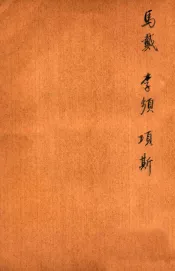 馬戴 李頻 項斯